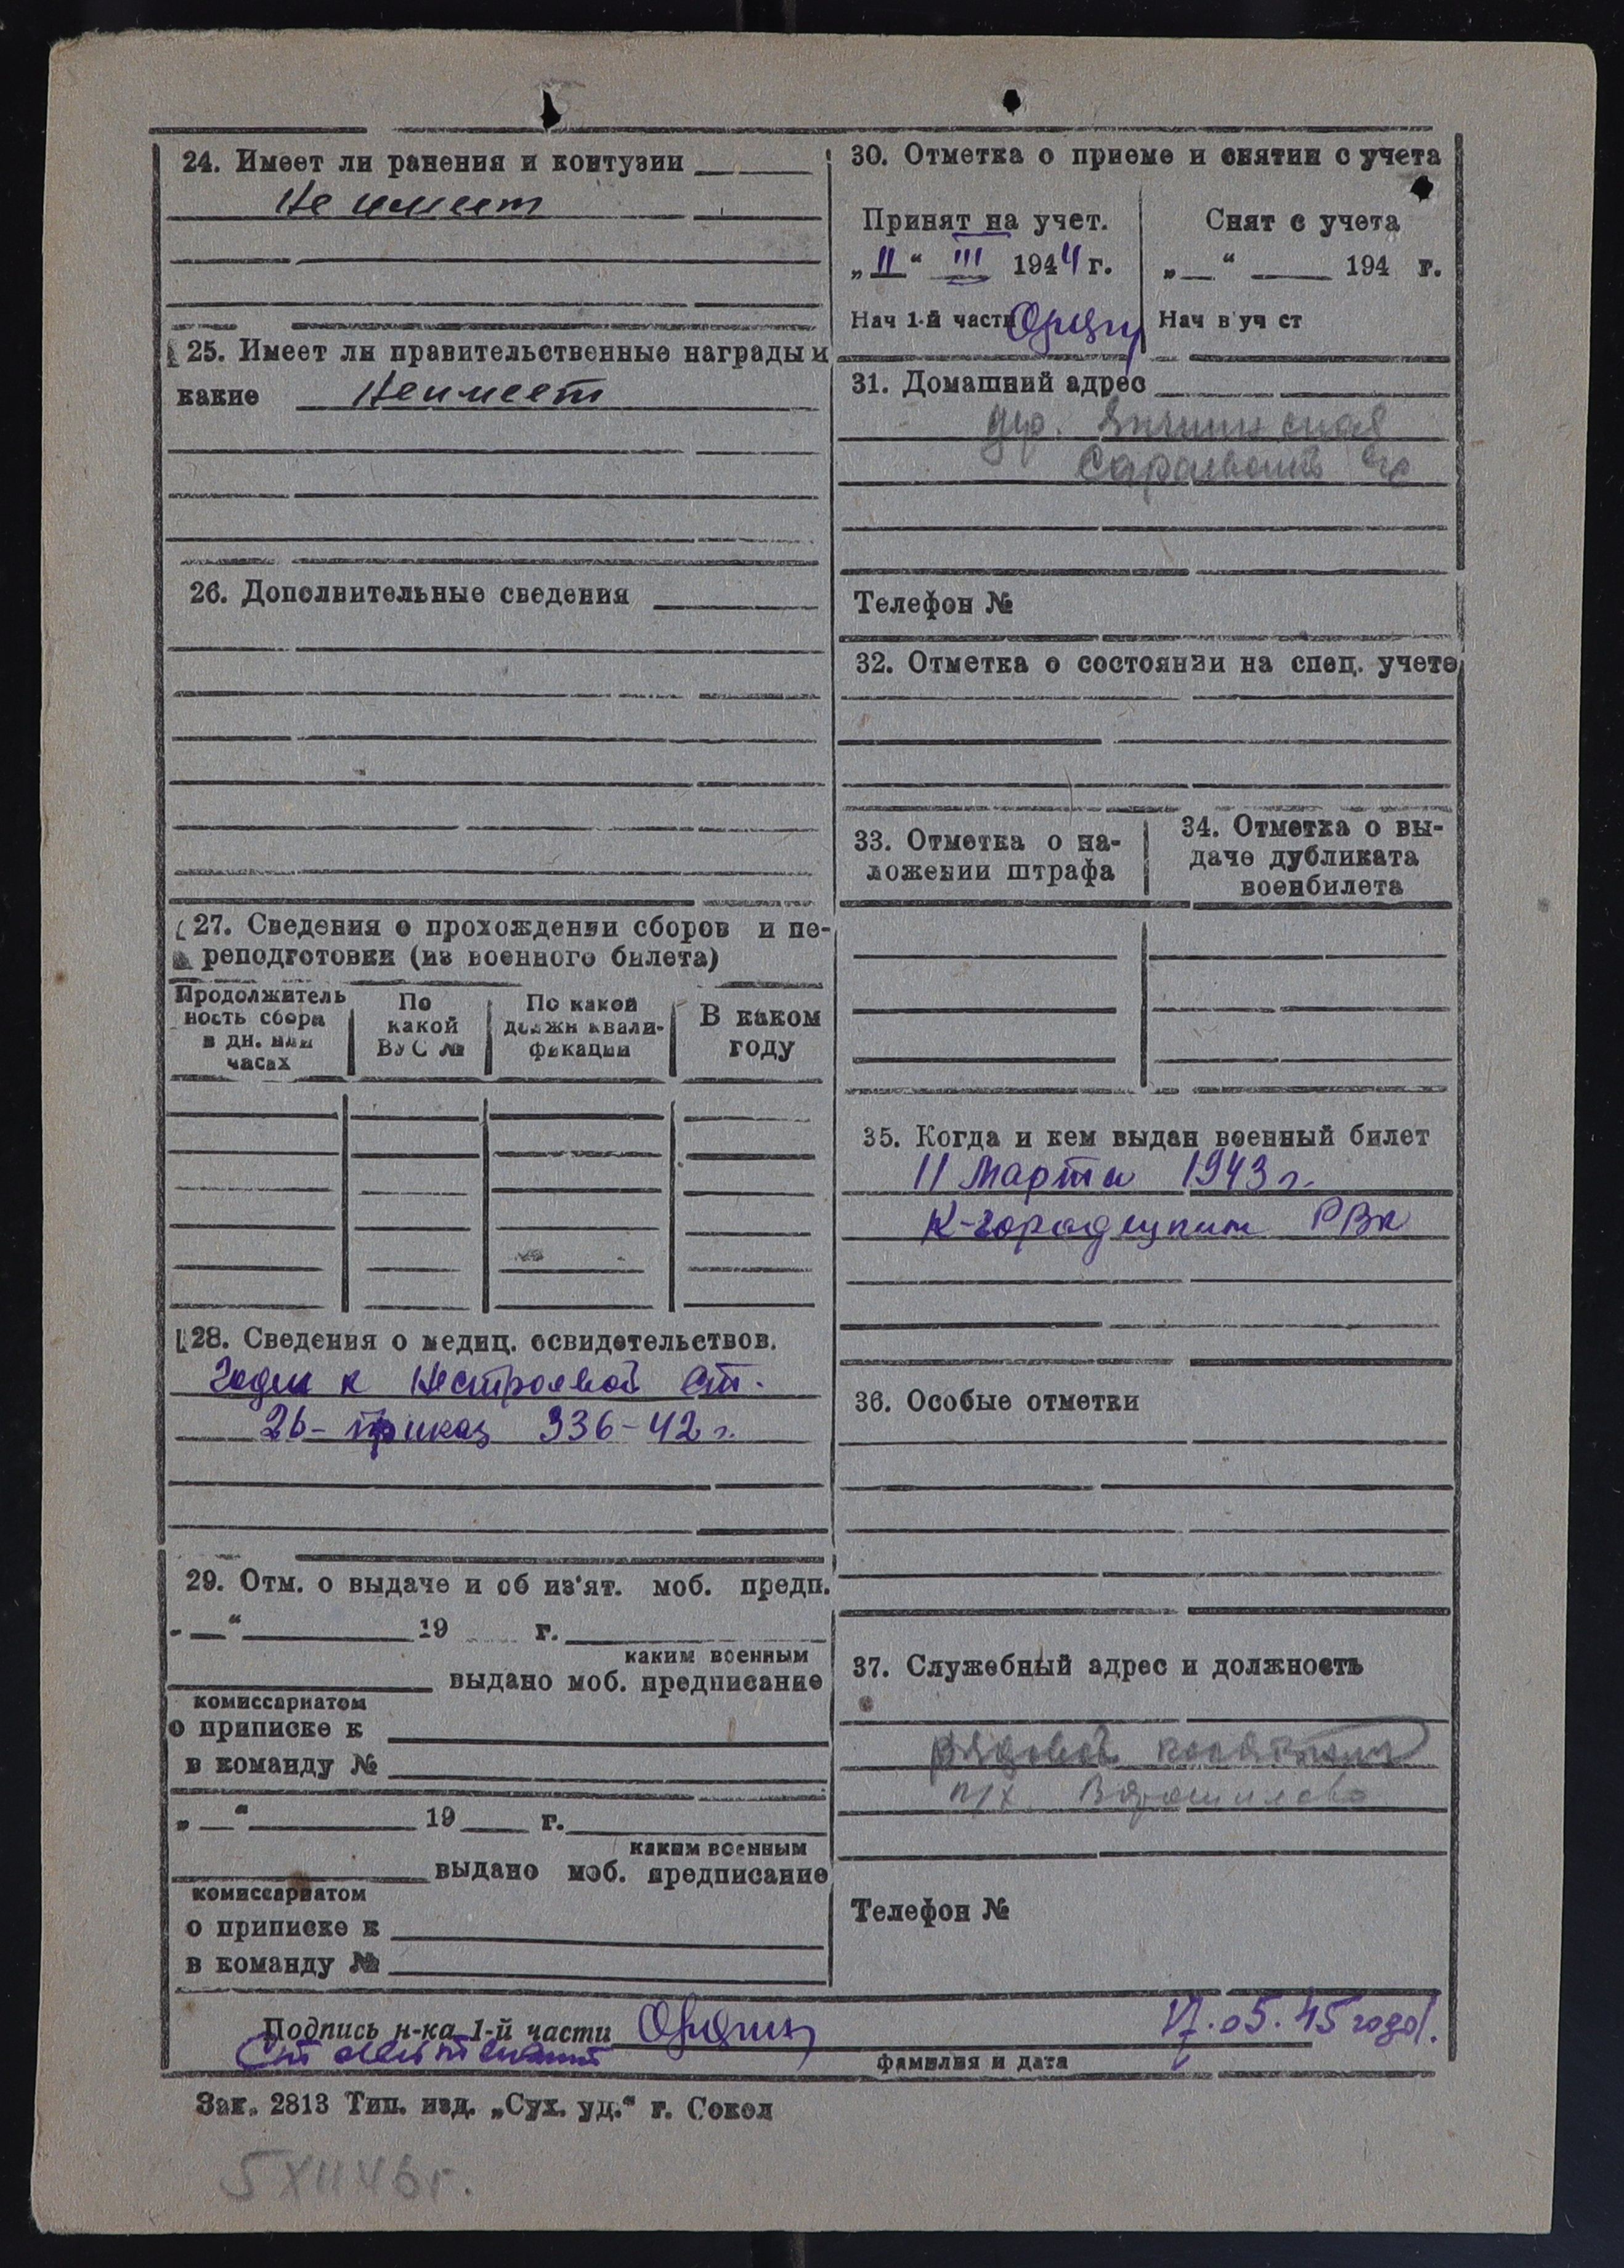 24. Имеет ли ранения и контузии
Не имеет
25. Имеет ли правительственные награды и
какие Неимеет
26. Дополнительные сведения
27. Сведения о прохождении сборов и пе-
реподготовки (из военного билета)
Продолжитель
ность сбора
в дн. или
часах
По
какой
ВУС №
По какой
должн квали-
фикации
В каком
году
28. Сведения о медиц. освидетельствов.
Годен к Нестроевой ст.
2б- приказ 336-42 г.
29. Отм. о выдаче и об из'ят. моб. предп.
„ “ 19 г.
каким военным
выдано моб. предписание
комиссариатом
о приписке к
в команду №
„ “ 19 г.
каким военным
выдано моб. предписание
комиссариатом
о приписке к
в команду №
30. Отметка о приеме и снятии с учета
Принят на учет.
„ 11 “ III 1944 г.
Нач 1-й части
Снят с учета
„ “ 194 г.
Нач в уч ст
31. Домашний адрес
дер.
с/с
Телефон №
32. Отметка о состоянии на спец. учете
33. Отметка о на-
ложении штрафа
34. Отметка о вы-
даче дубликата
военбилета
35. Когда и кем выдан военный билет
11 Марта 1943 г.
К-городецким РВК
36. Особые отметки
37. Служебный адрес и должность
рядовой
к/х Ворошилова
Телефон №
Подпись н-ка 1-й части 17.05.45 года.
Ст лейтенант
фамилия и дата
Зак. 2813 Тип. изд. „Сух. уд.“ г. Сокол
5 XII 46 г.